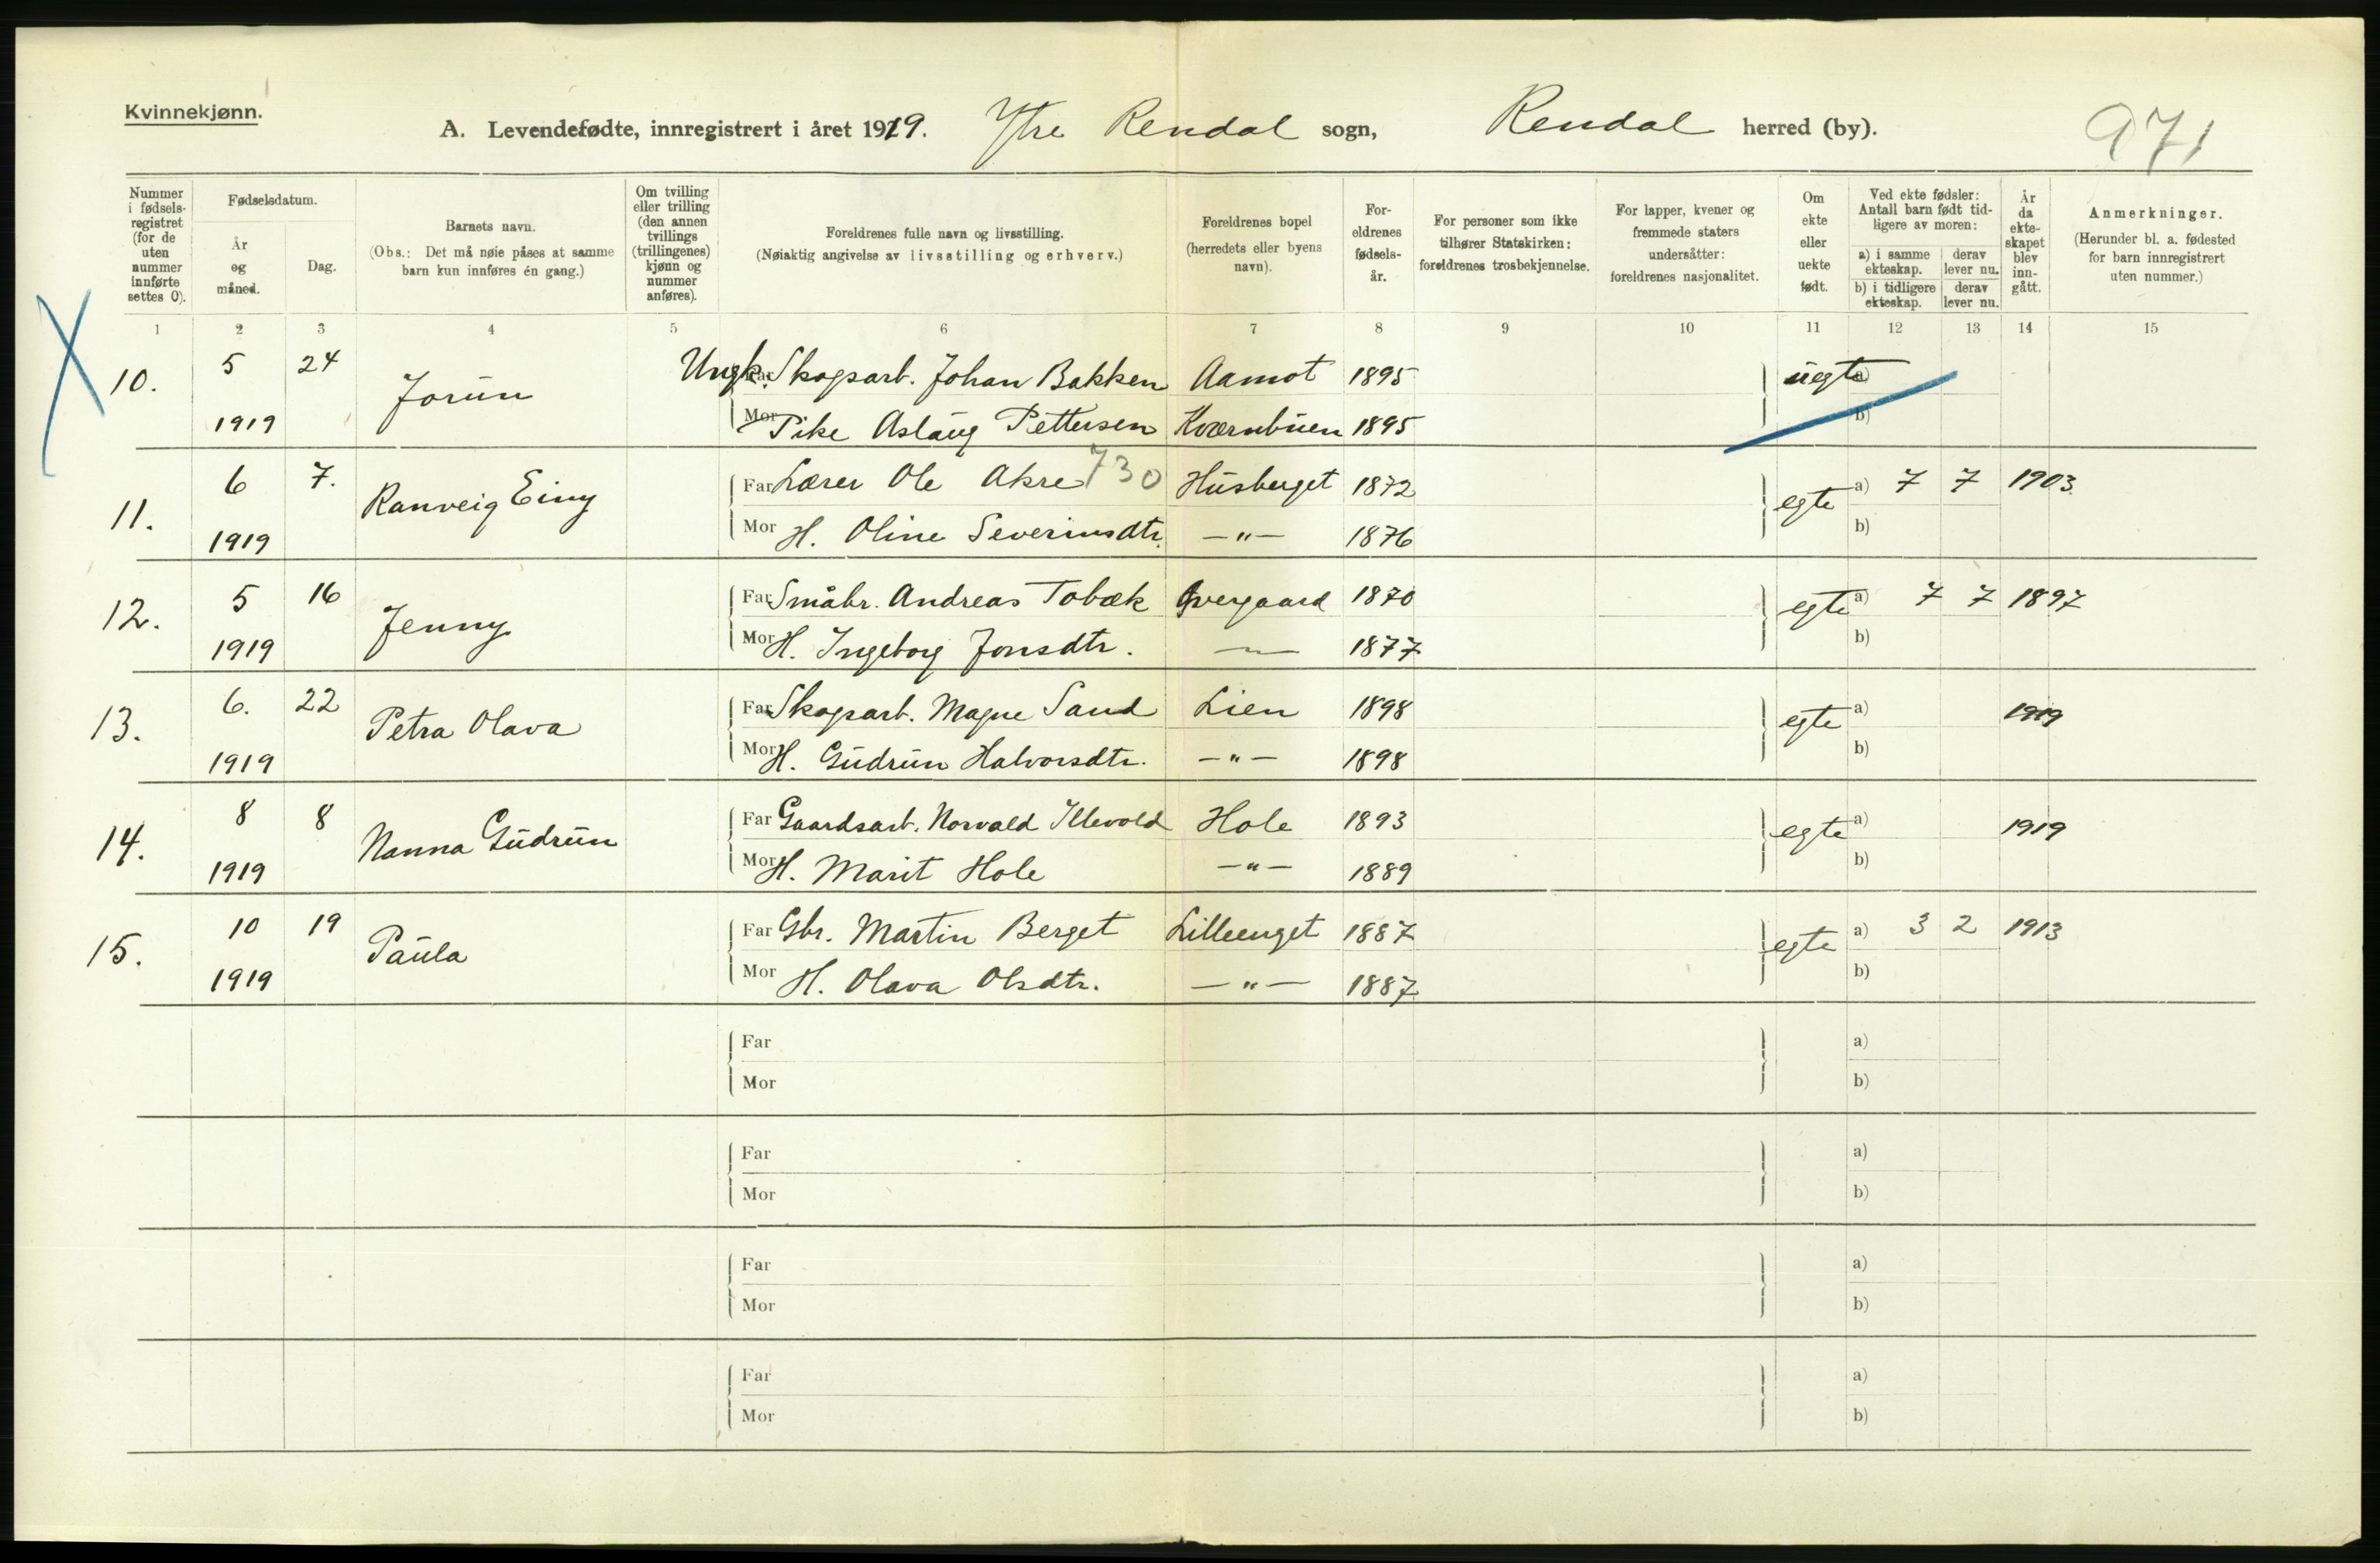 Kvinnekjønn.
A. Levendefødte, innregistrert i året 1919. Ytre Rendal sogn, Rendal herred (by).
971
Nummer i fødsels-registret (for de uten nummer innførte settes 0).
Fødselsdatum.
År og måned.
Dag.
Barnets navn.
(Obs.: Det må nøie påses at samme barn kun innføres én gang.)
Om tvilling eller trilling (den annen tvillings (trillingenes) kjønn og nummer anføres).
Foreldrenes fulle navn og livsstilling.
(Nøiaktig angivelse av livsstilling og erhverv.)
Foreldrenes bopel (herredets eller byens navn).
For-eldrenes fødsels-år.
For personer som ikke tilhører Statskirken: foreldrenes trosbekjennelse.
For lapper, kvener og fremmede staters undersåtter: foreldrenes nasjonalitet.
Om ekte eller uekte født.
Ved ekte fødsler: Antall barn født tid-ligere av moren:
a) i samme ekteskap.
derav lever nu.
b) i tidligere ekteskap.
derav lever nu.
År da ekte-skapet blev inn-gått.
Anmerkninger.
(Herunder bl. a. fødested for barn innregistrert uten nummer.)
1 2 3 4 5 6 7 8 9 10 11 12 13 14 15
10. 5 24 Jorun Ungk. Far Skogsarb. Johan Bakken Aamot 1895 uegte a)
1919 Mor Pike Aslaug Pettersen Kværnbuen 1895 b)
11. 6 7. Ranveig Einy Far Lærer Ole Akre 730 Husberget 1872 egte a) 7 7 1903
1919 Mor H. Oline Severinsdtr. —"— 1876 b)
12. 5 16 Jenny Far Småbr. Andreas Tobæk Øvergaard 1870 egte a) 7 7 1897
1919 Mor H. Ingeborg Jonsdtr. —"— 1877 b)
13. 6. 22 Petra Olava Far Skogsarb. Magne Sand Lien 1898 egte a) 1919
1919 Mor H. Gudrun Halvorsdtr. —"— 1898 b)
14. 8 8 Nanna Gudrun Far Gaardsarb. Norvald Illevold Hole 1893 egte a) 1919
1919 Mor H. Marit Hole —"— 1889 b)
15. 10 19 Paula Far Gbr. Martin Berget Lilleenget 1887 egte a) 3 2 1913
1919 Mor H. Olava Olsdtr. —"— 1887 b)
Far a)
Mor b)
Far a)
Mor b)
Far a)
Mor b)
Far a)
Mor b)